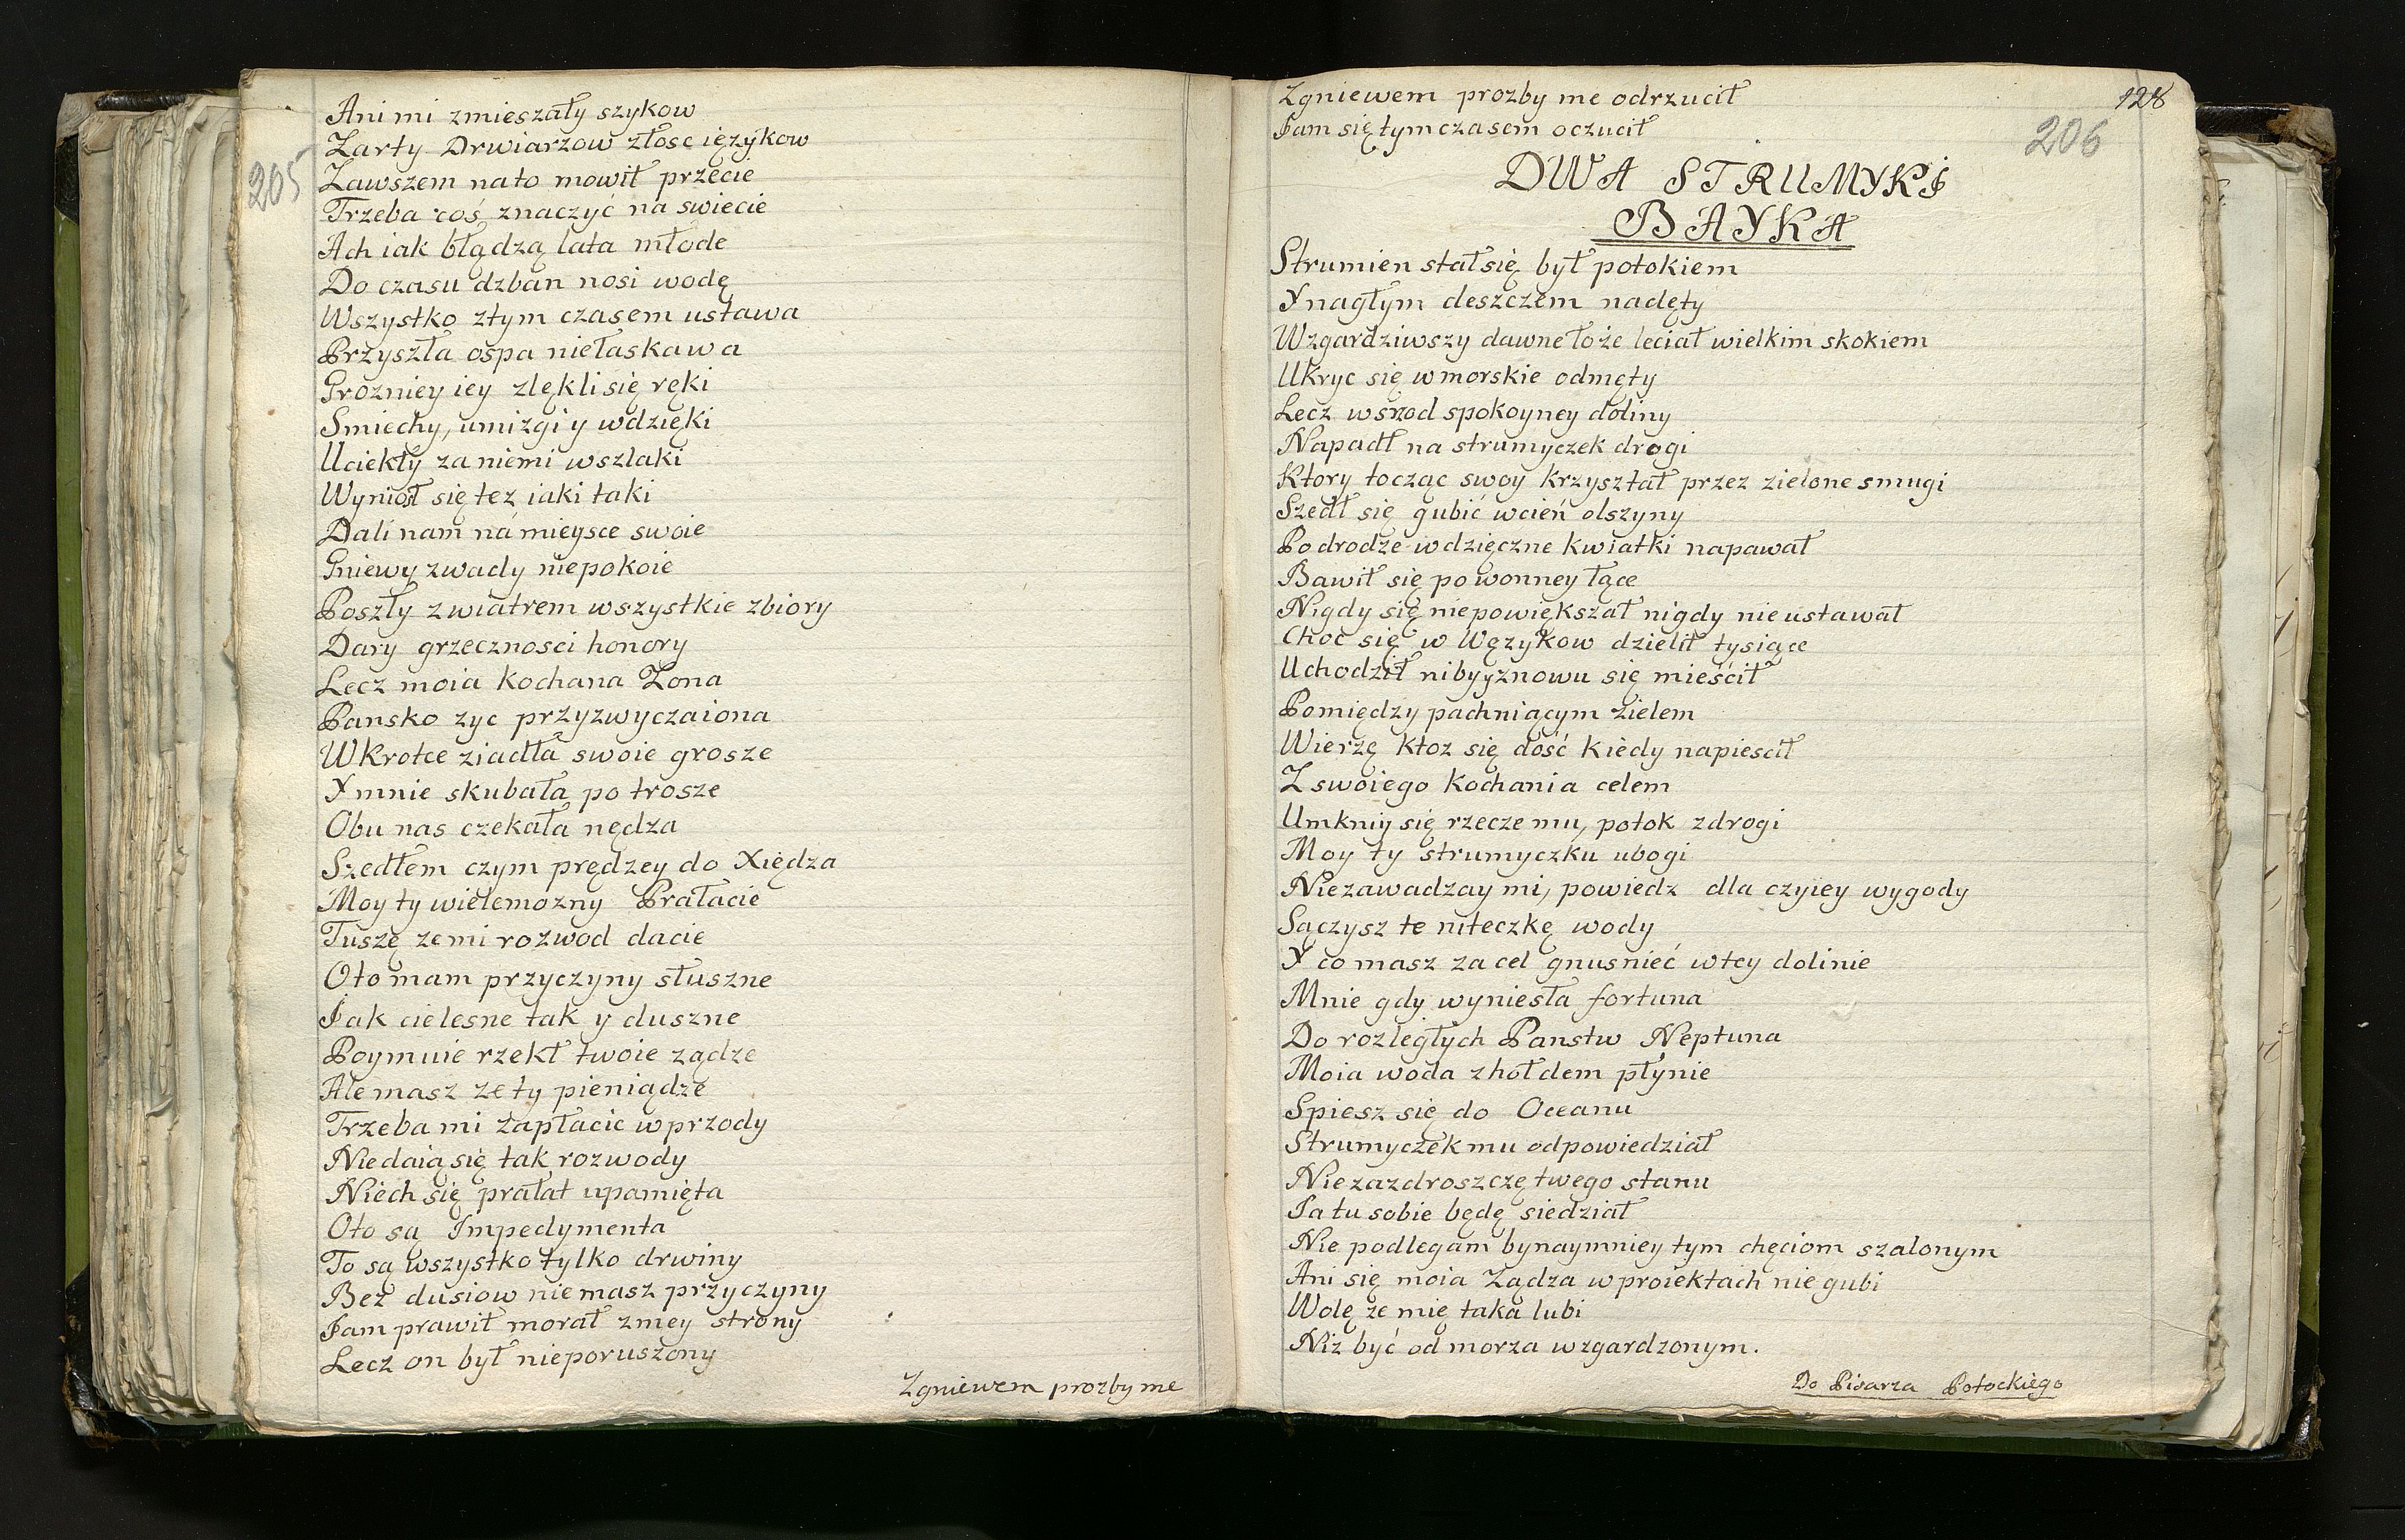 205
Ani mi zmieszały szykow
Zarty Drwiarzow złosc ięzykow
Zawszem na to mowił przecie
Trzeba coś znaczyć na swiecie
Ach iak błądzą lata młode
Do czasu dzban nosi wodę
Wszystko z tym czasem ustawa
Przyszła ospa niełaskawa
Grozniey iey zlękli się ręki
Smiechy, umizgi y wdzięki
Uciekły za niemi wszlaki
Wyniosł się tez iaki taki
Dali nam na mieysce swoie
Gniewy zwady niepokoie
Poszły z wiatrem wszystkie zbiory
Dary grzecznosci honory
Lecz moia kochana Zona
Pansko zyc przyzwyczaiona
Wkrotce ziadła swoie grosze
Y mnie skubała po trosze
Obu nas czekała nędza
Szedłem czym prędzey do Xiędza
Moy ty wielemozny Prałacie
Tuszę ze mi rozwod dacie
Oto mam przyczyny słuszne
Jak cielesne tak y duszne
Poymuie rzekł twoie ządze
Ale masz ze ty pieniądze
Trzeba mi zapłacic wprzody
Niedaią się tak rozwody
Niech się prałat upamięta
Oto są Impedymenta
To są wszystko tylko drwiny
Bez dusiow niemasz przyczyny
Jam prawił morał z mey strony
Lecz on był nieporuszony
Zgniewem prozby me
128
206
Zgniewem prozby me odrzucił
Jam się tymczasem oczucił
DWA STRUMYKJ
BAYKA
Strumien stał się był potokiem
Y nagłym deszczem nadęty
Wzgardziwszy dawne łoże leciał wielkim skokiem
Ukryc się w morskie odmęty
Lecz wsrod spokoyney doliny
Napadł na strumyczek drogi
Ktory tocząc swoy krzyształ przez zielone smugi
Szedł się gubić wcień olszyny
Po drodze wdzięczne kwiatki napawał
Bawił się po wonney łące
Nigdy się niepowiększał nigdy nie ustawał
Choc się w Węzykow dzielił tysiące
Uchodził niby y znowu się mieścił
Pomiędzy pachniącym zielem
Wierzę ktoz się dość kiedy napiescił
Z swoiego kochania celem
Umkniy się rzecze mu, potok zdrogi
Moy ty strumyczku ubogi
Niezawadzay mi, powiedz dla czyiey wygody
Sączysz te niteczkę wody
Y co masz za cel gnusnieć wtey dolinie
Mnie gdy wyniesła fortuna
Do rozległych Panstw Neptuna
Moia woda z hołdem płynie
Spiesz się do Oceanu
Strumyczek mu odpowiedział
Niezazdroszczę twego stanu
Ja tu sobie będę siedział
Nie podlegam bynaymniey tym chęciom szalonym
Ani się moia Ządza w proiektach nie gubi
Wolę ze mię taka lubi
Niz być od morza wzgardzonym.
Do Pisarza Potockiego